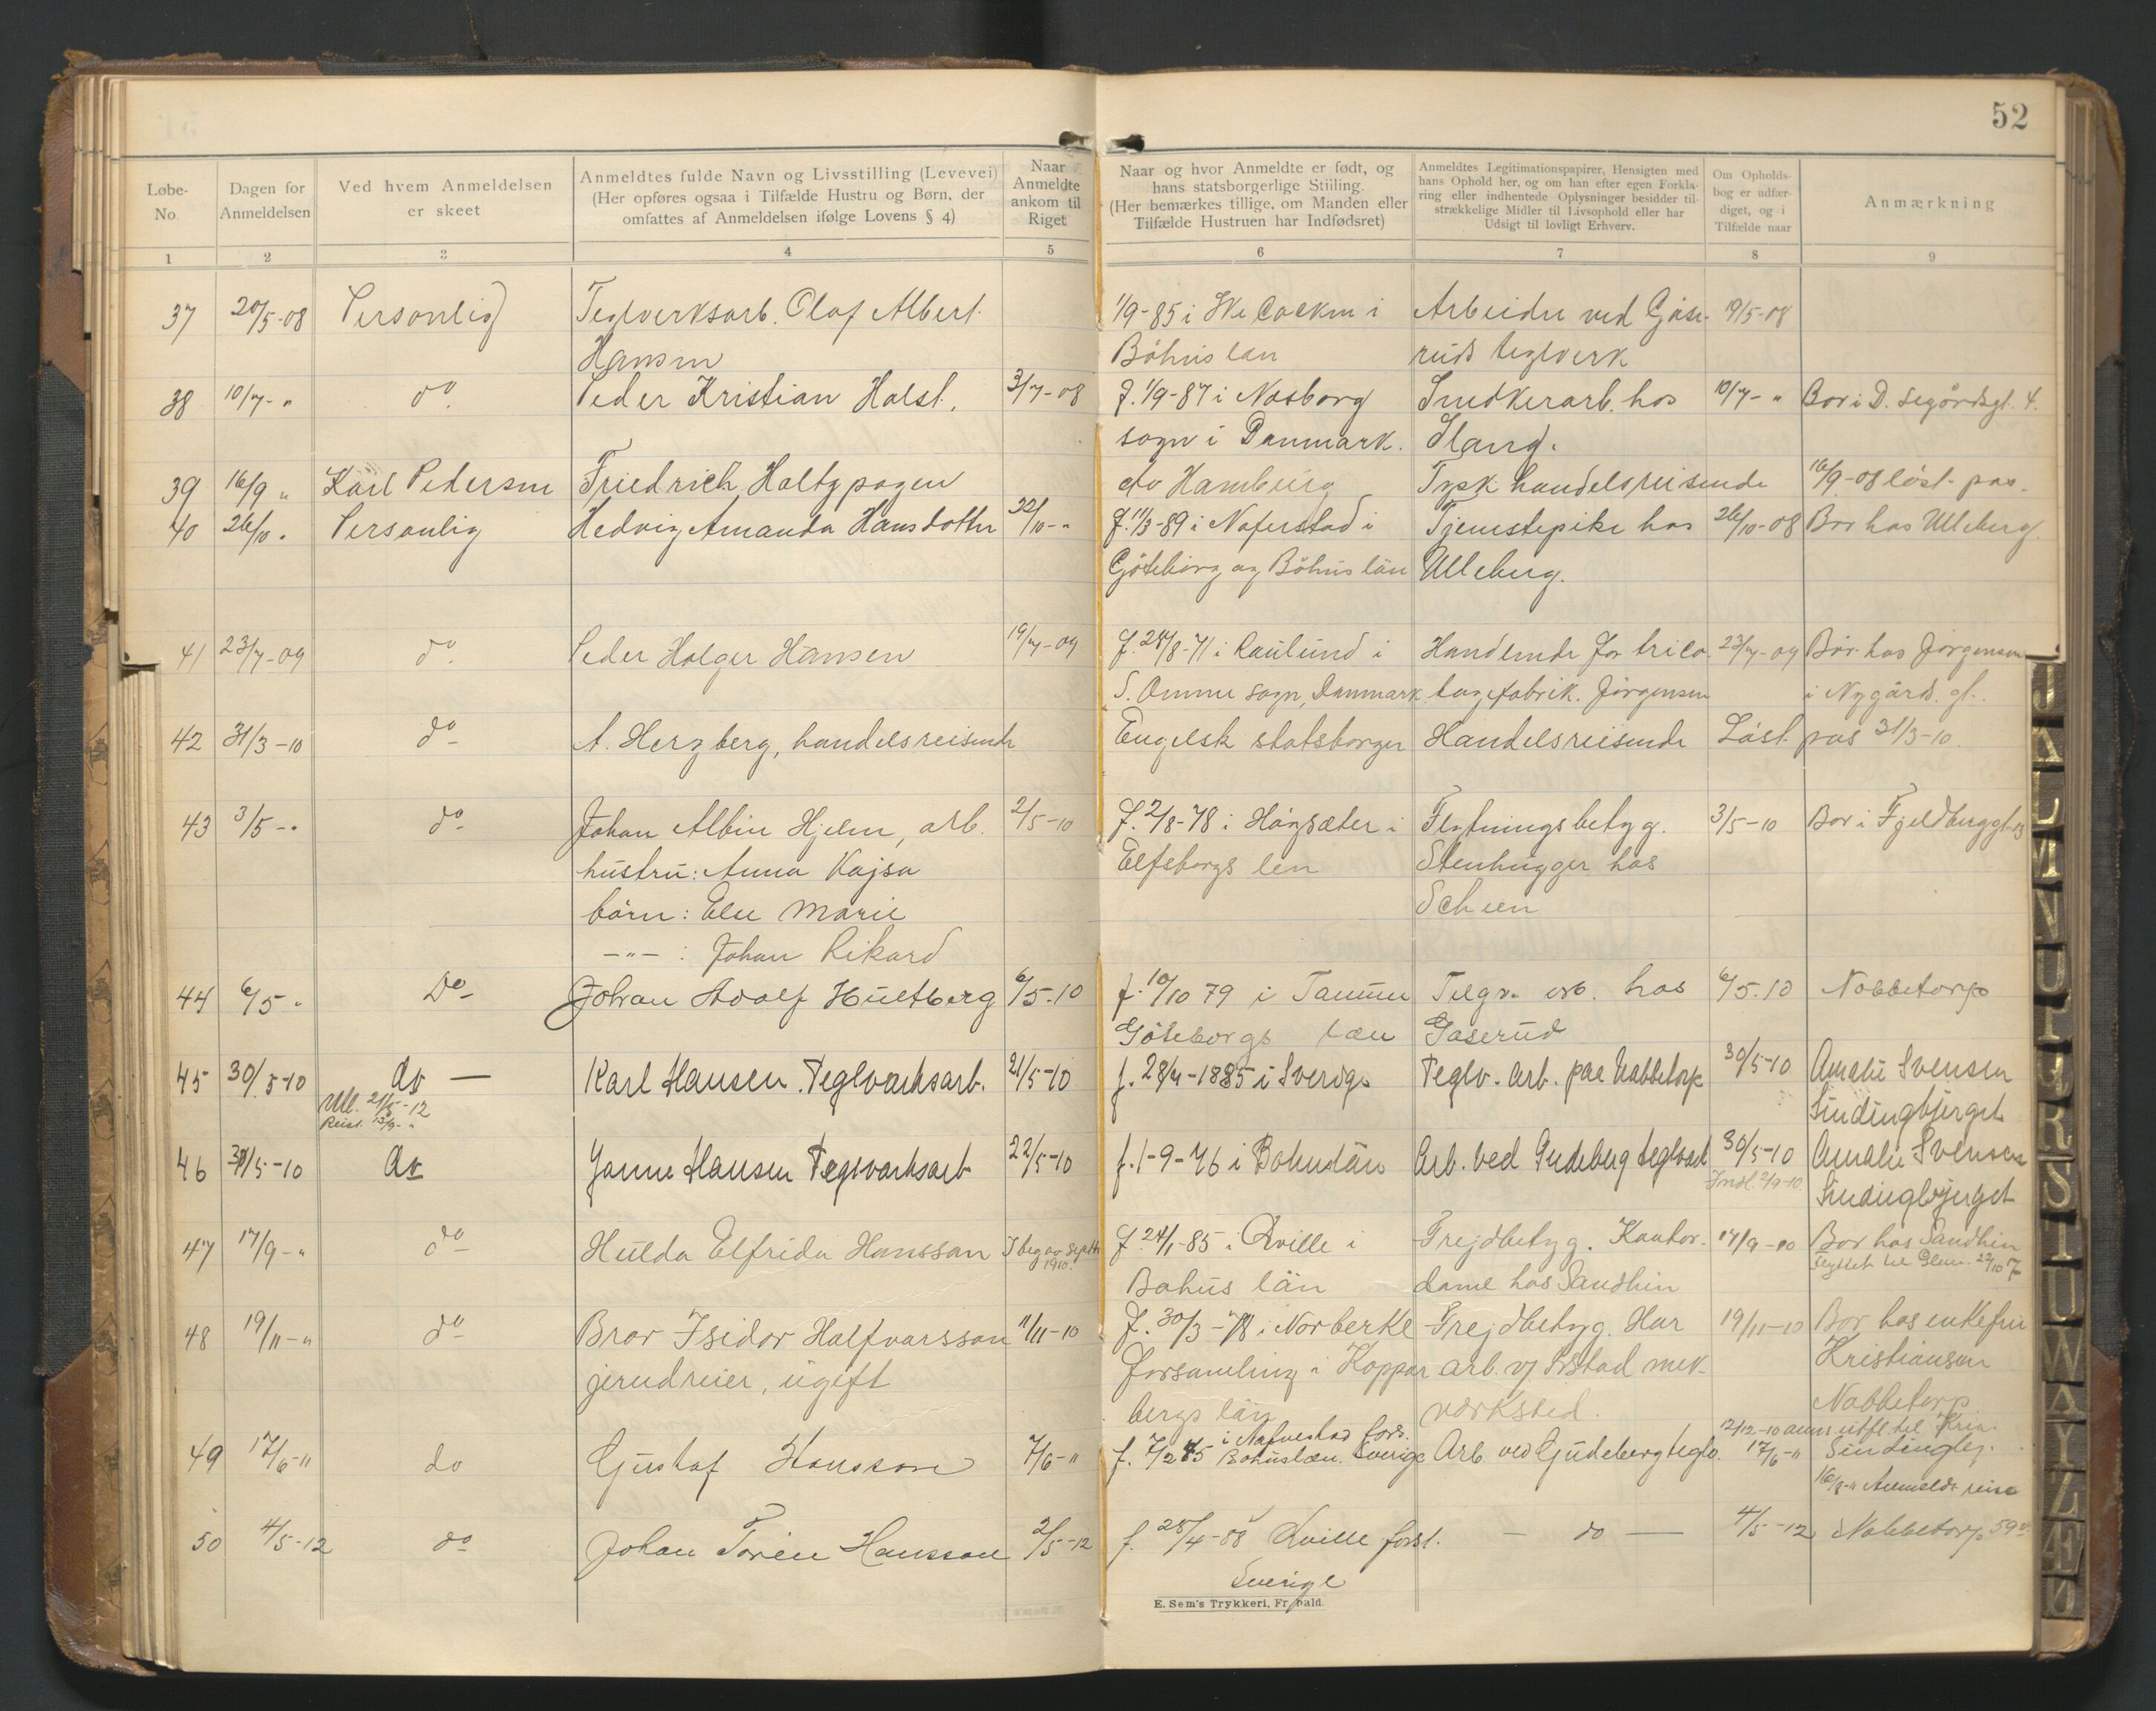 52
Løbe-No.
Dagen for Anmeldelsen
Ved hvem Anmeldelsen er skeet
Anmeldtes fulde Navn og Livsstilling (Levevei)
(Her opføres ogsaa i Tilfælde Hustru og Børn, der
omfattes af Anmeldelsen ifølge Lovens § 4)
Naar Anmeldte ankom til Riget
Naar og hvor Anmeldte er født, og
hans statsborgerlige Stilling.
(Her bemærkes tillige, om Manden eller
Tilfælde Hustruen har Indfødsret)
Anmeldtes Legitimationspapirer, Hensigten med
hans Ophold her, og om han efter egen Forkla-
ring eller indhentede Oplysninger besidder til-
strækkelige Midler til Livsophold eller har
Udsigt til lovligt Erhverv.
Om Opholds-
bog er udfær-
diget, og i
Tilfælde naar
Anmærkning
1 2 3 4 5 6 7 8 9
37 20/5-08 Personlig Teglverksarb. Olaf Albert 1/9-85 i Arbeider ved Gåse- 19/5-08
Hansen Bohus lan ruds teglverk
38 10/7-" do. Peder Kristian Holst. 3/7-08 f. 1/9-87 i Nosborg Snedkerarb. hos 10/7-" Bor i D. Segårdsgt. 4.
sogn i Danmark. Stang.
39 16/9 " Karl Pedersen Friedrich Holtzpagen av Hamburg Tysk handelsreisende 16/9-08 löst pas.
40 26/10 " Personlig Hedvig Amanda Hansdotter 22/10-" f. 11/3-89 i Naferstad i Tjenestepike hos 26/10-08 Bor hos Ulleberg.
Göteborg og Bohus län Ulleberg.
41 23/7-09 do. Peder Holger Hansen 19/7-09 f. 28/8-71 i Raulund i Handlende for trico- 23/7-09 Bor hos Jørgensen
S. Omme sogn, Danmark tagefabrik. Jörgensen i Nygårds gt.
42 31/3-10 do A. Herzberg, handelsreisende Engelsk statsborger Handelsreisende Löst pas 31/3-10
43 3/5-" do Johan Albin Hjelm, arb. 2/5-10 f. 2/8-78 i Högsäter i Flytningsbetyg. 3/5-10 Bor i Fjeldberggt-13
hustru: Anna Kajsa Elfsborgs len Stenhugger hos
börn: Else Marie Scheen
-"- : Johan Rikard
44 6/5 " Do Johan Adolf Hultberg 6/5-10 f. 10/10 79 i Tanum Telgv. arb. hos 6/5.10 Nabbetorp
Göteborgs læn Gaserud
45 30/5-10 do — Karl Hansen. Teglværksarb. 21/5-10 f. 28/4-1885 i Sverige Teglv. arb. paa Nabbetorp 30/5-10 Amalie Svensen
Utl. 21/5-12 Sindingbjerget
Reist 13/9-"
46 30/5-10 do Janne Hansen Teglværksarb 22/5-10 f. 1-9-76 i Bohuslän Arb. ved Gudeberg teglværk 30/5-10 Amalie Svensen
Indl. 2/9-10. Sindingbjerget
47 17/9-" do Hulda Elfrida Hansson I beg av septbr 1910. f. 24/1-85 i Qville i Frejdbetyg. Kontor- 17/9-10 Bor hos Sandhin
Bohus län dame hos Sandhin flyttet til Glem. 22/10 17
48 19/11-" do Bror Isidor Halfvarsson 11/11-10 f. 30/3-78 i Norberke Frejdbetyg. Har 19/11-10 Bor hos enkefru
jerndreier, ugift forsamling i Koppar arb. v/ Ørstad mek. Kristiansen
bergs län værksted. Nabbetorp
12/12-10 anm. utfl. til Kria.
49 17/6-11 do Gustaf Hansson 7/6-11 f. 7/2 85 i Nafvestad fors. Bohuslæn. Sverige Arb. ved Gudeberg teglv. 17/6-11 Sindingbj.
16/8-11 Anmeldt reise
50 4/5-12 do Johan Torin Hansson 2/5-12 f. 28/4-88 Qville forsl. — do — 4/5-12 Nabbetorp 59
Sverige
E. Sem's Trykkeri, Fr.hald.
J
L
M
N
O
P
R
S
T
U
W
Y
Z
Æ
Ø